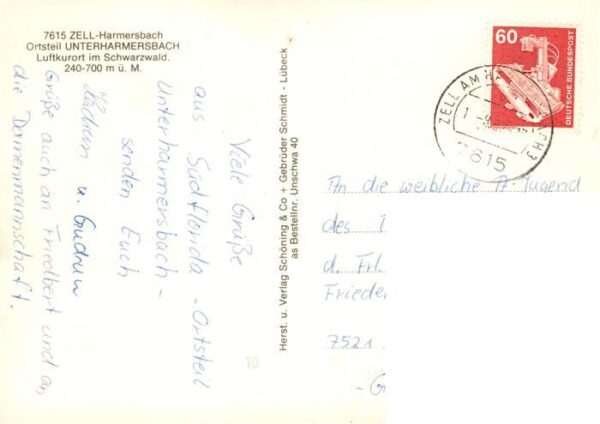 7615 ZELL-Harmersbach
Ortsteil UNTERHARMERSBACH
Luftkurort im Schwarzwald,
240-700 m ü. M.
Viele Grüße
aus Südflorida - Ortsteil
Unterharmersbach -
senden Euch
u. Gudrun
Grüße auch an Friedbert und an
die Damenmannschaft.
Herst. u. Verlag Schöning & Co + Gebrüder Schmidt - Lübeck
as Bestellnr. Unschwa 40
60
DEUTSCHE BUNDESPOST
ZELL AM
7615
An die weibliche A-Jugend
des
d. Frl.
7521
10